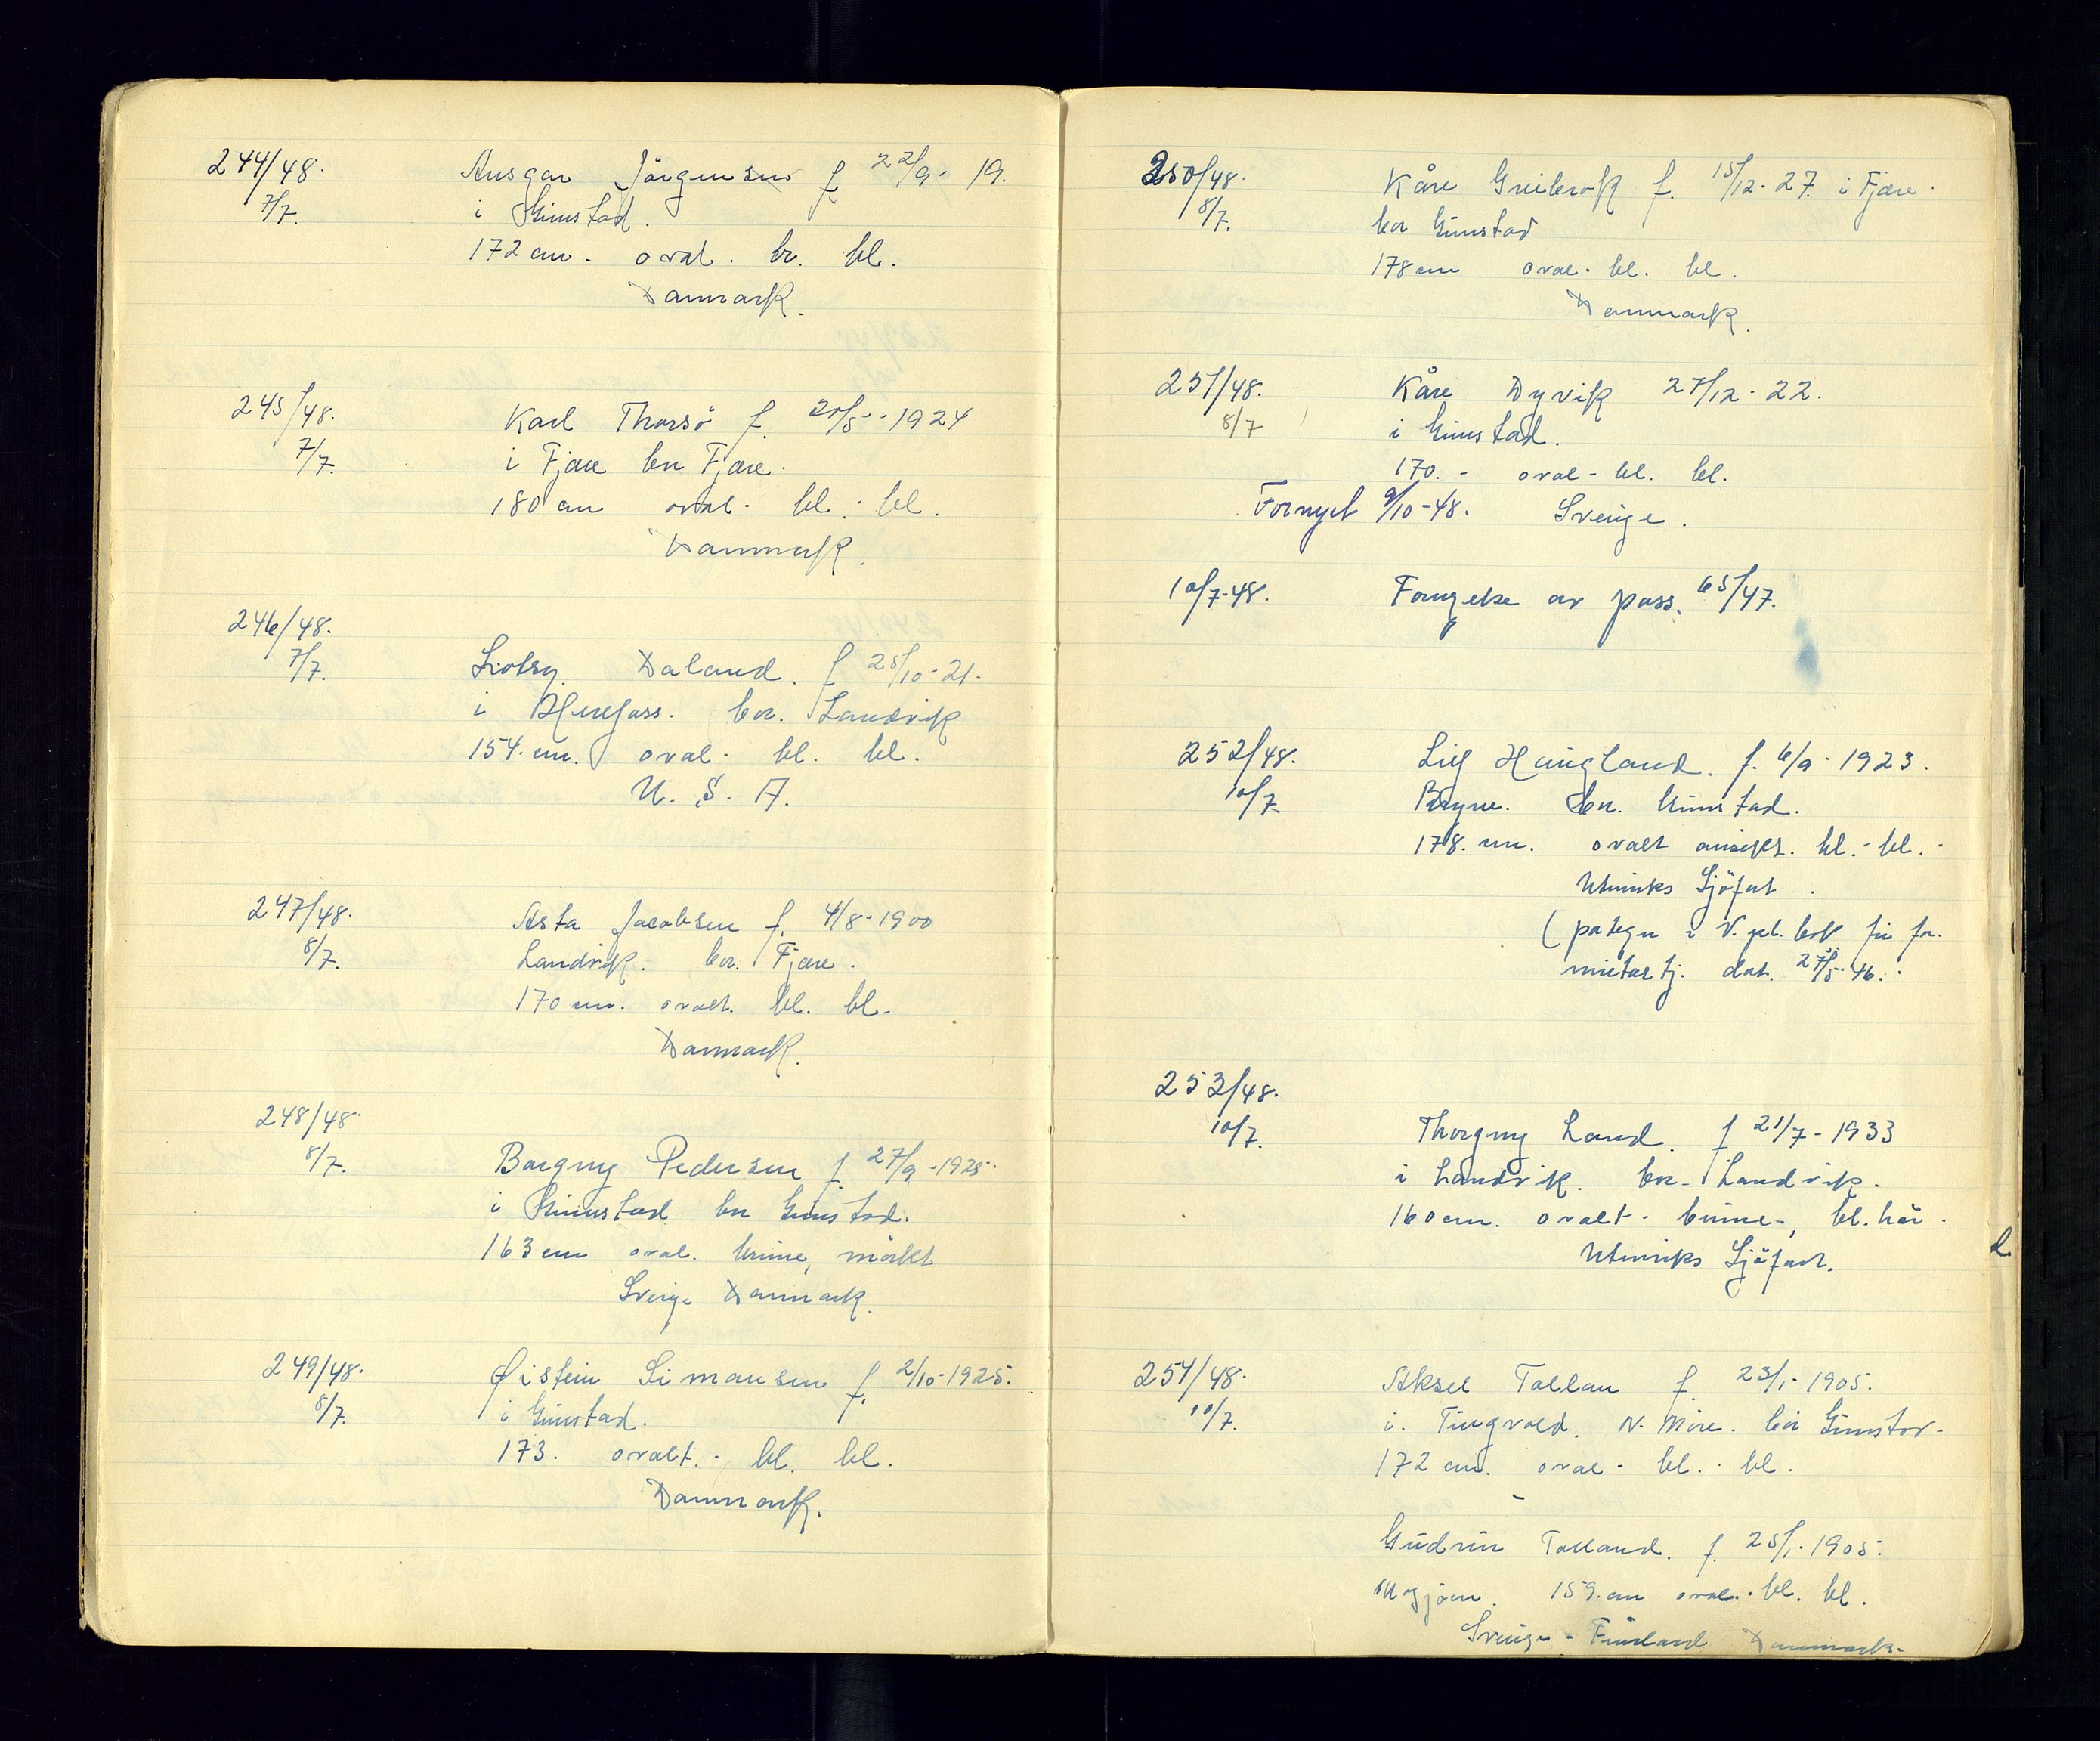 244/48.
7/7.
Ansgar Jörgensen f 22/9- 19.
i Grimstad.
172 cm. oval. br. bl.
Danmark.
245/48.
7/7.
Karl Thorsö f. 20/5-1924
i Fjære bor Fjære.
180 cm oval. bl. bl.
Danmark.
246/48.
7/7.
Daland. f 25/10-21.
i Herefoss. bor. Landvik
154. cm. oval. bl. bl.
U. S. A.
247/48.
8/7.
Asta Jacobsen f. 4/8-1900
Landvik. bor. Fjære.
170 cm. ovalt. bl. bl.
Danmark.
248/48.
8/7.
Borgny Pedersen f. 27/9-1925.
i Grimstad bor Grimstad.
163 cm oval. brune, mörkt
Sverige Danmark.
249/48.
8/7.
Øistein Simonsen f. 2/10-1925.
i Grimstad.
173. ovalt. bl. bl.
Danmark.
250/48.
8/7.
Kåre Greibrok f. 15/12-27. i Fjære.
bor Grimstad
178 cm oval. bl. bl.
Danmark.
251/48.
8/7
Kåre Dyvik 27/12-22.
i Grimstad.
170.- oval- bl. bl.
Fornyet 9/10-48. Sverige.
10/7-48. Fornyelse av pass. 65/47.
252/48.
10/7
Haugland. f. 6/9-1923.
Bryne. bor. Grimstad.
178. cm. ovalt ansikt. bl.- bl.-
Utenriks Sjöfart.
(pategn i V.pl. bok for
militærtj. dat. 27/5-46.
253/48.
10/7.
Thorgny Lund. f 21/7-1933
i Landvik. bor. Landvik.
160 cm. ovalt- brune-, bl. hår.
Utenriks Sjöfart.
254/48.
10/7.
Aksel Tallan f. 23/1-1905.
i. Tingvold. N. Möre. bor Grimstad.
172 cm. oval- bl. bl.
Gudrun Talland. f. 25/1-1905.
159. cm oval. bl. bl.
Sverige - Finland Danmark.